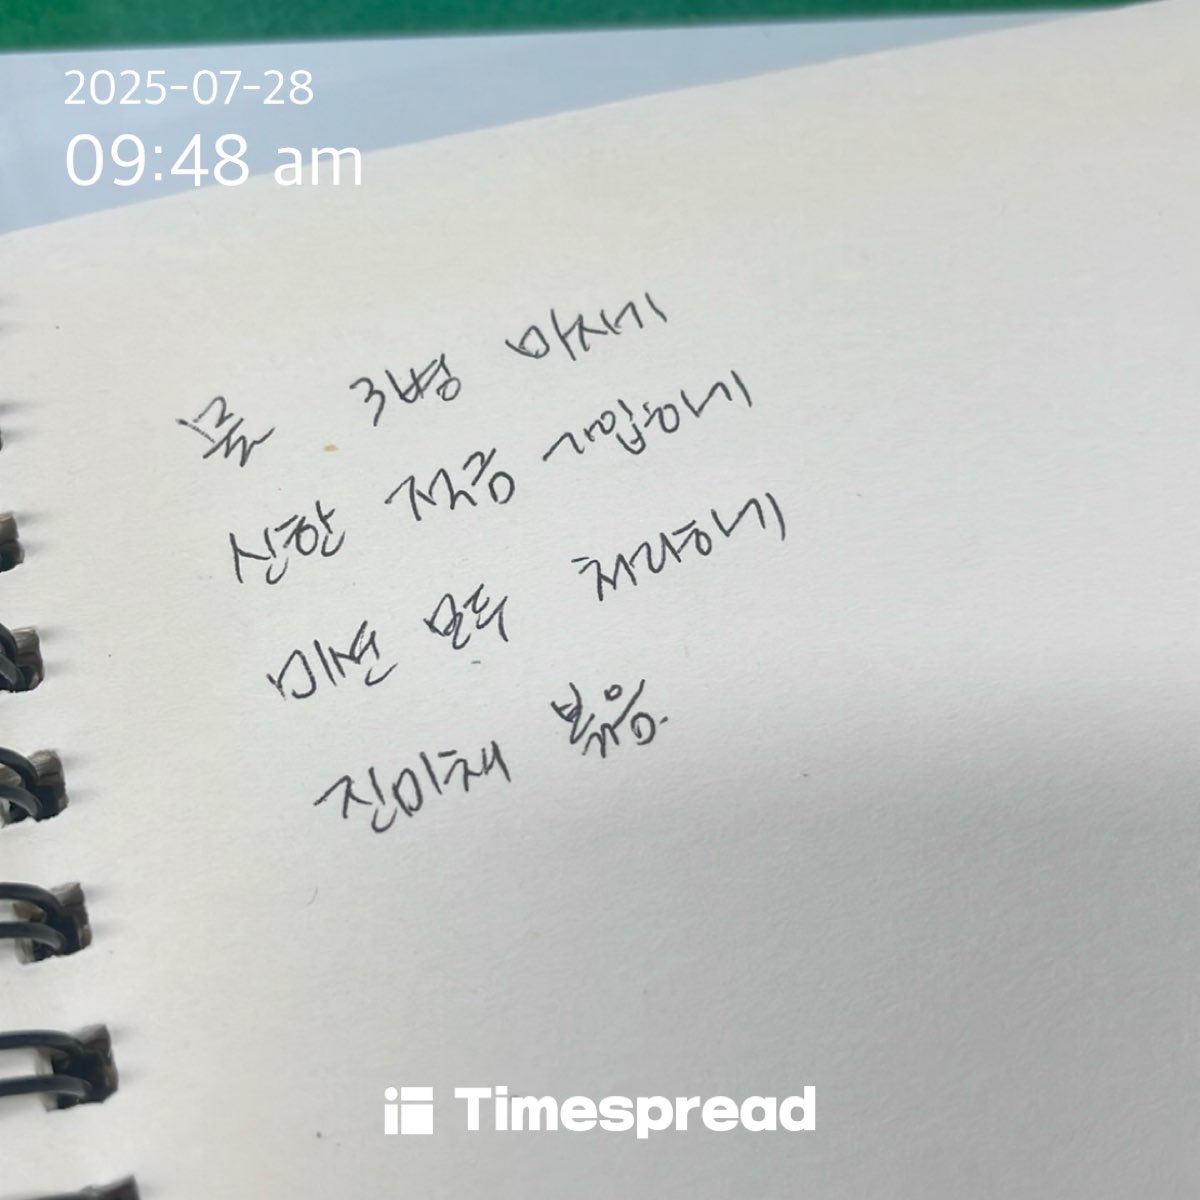 2025-07-28
09:48 am
물 3병 마시기
신한 적금 가입하기
미션 모두 처리하기
진미채 볶음.
Timespread